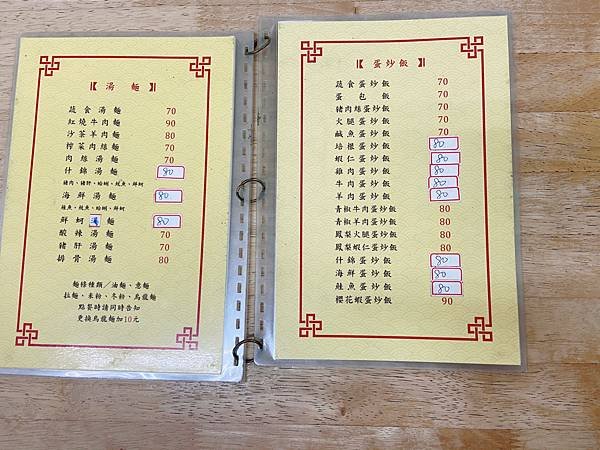 【 湯 麵 】
蔬食湯麵 70
紅燒牛肉麵 90
沙茶羊肉麵 80
榨菜肉絲麵 70
肉絲湯麵 70
什錦湯麵 80
豬肉、豬肝、蛤蜊、魷魚、鮮蚵
海鮮湯麵 80
鮭魚、魷魚、蛤蜊、鮮蚵
鮮蚵湯麵 80
酸辣湯麵 70
豬肝湯麵 70
排骨湯麵 80
麵條種類/油麵、意麵
拉麵、米粉、冬粉、烏龍麵
點餐時請同時告知
更換烏龍麵加10元
【 蛋炒飯 】
蔬食蛋炒飯 70
蛋包飯 70
豬肉絲蛋炒飯 70
火腿蛋炒飯 70
鹹魚蛋炒飯 70
培根蛋炒飯 80
蝦仁蛋炒飯 80
雞肉蛋炒飯 80
牛肉蛋炒飯 80
羊肉蛋炒飯 80
青椒牛肉蛋炒飯 80
青椒羊肉蛋炒飯 80
鳳梨火腿蛋炒飯 80
鳳梨蝦仁蛋炒飯 80
什錦蛋炒飯 80
海鮮蛋炒飯 80
鮭魚蛋炒飯 80
櫻花蝦蛋炒飯 90